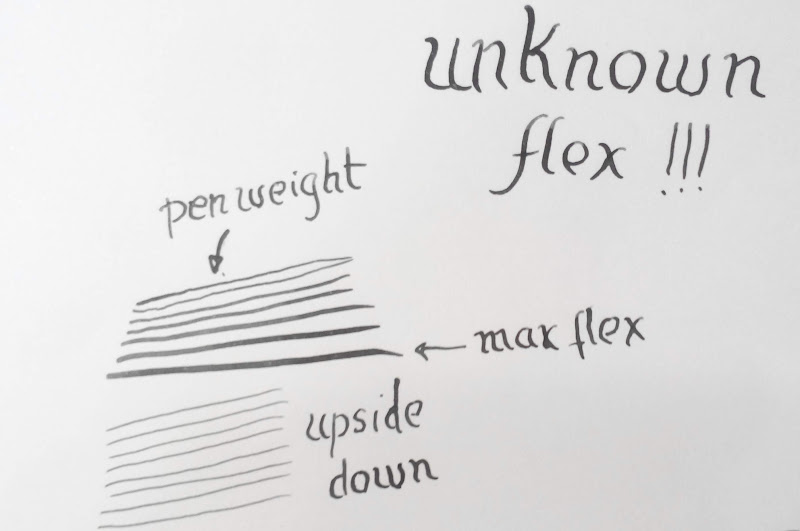 unknown
flex !!!
pen weight
max flex
upside
down